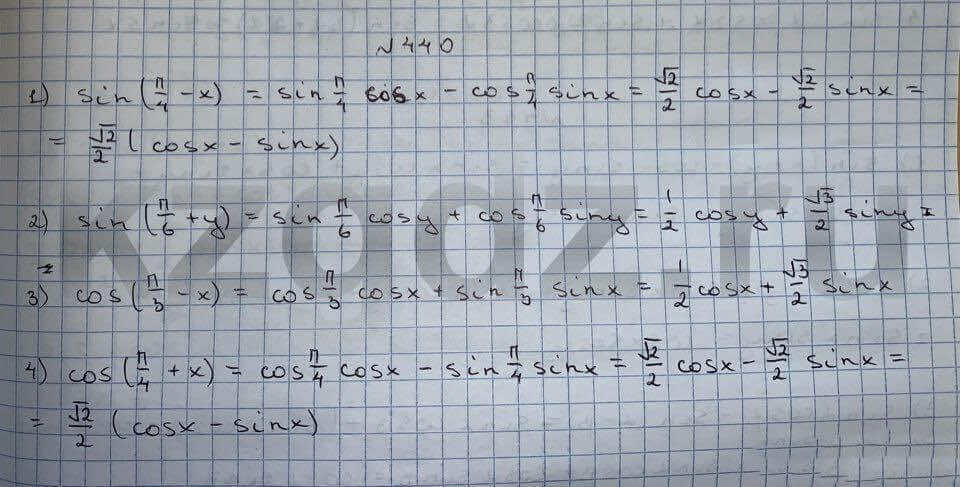 №440
1) sin(π/4 - x) = sin π/4 cosx - cos π/4 sinx = √2/2 cosx - √2/2 sinx =
= √2/2 (cosx - sinx)
2) sin(π/6 + y) = sin π/6 cosy + cos π/6 siny = 1/2 cosy + √3/2 siny =
=
3) cos(π/3 - x) = cos π/3 cosx + sin π/3 sinx = 1/2 cosx + √3/2 sinx
4) cos(π/4 + x) = cos π/4 cosx - sin π/4 sinx = √2/2 cosx - √2/2 sinx =
= √2/2 (cosx - sinx)
kzgdz.ru